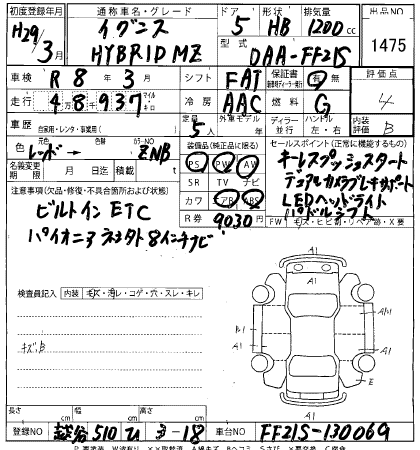 初度登録年月 通称車名・グレード ドア 形状 排気量 出品NO
H29/3月 イグニス HYBRID MZ 5 HB 1200cc 1475
型式 DAA-FF21S
車検 R8年3月 シフト FAT 保証書 有 無 評価点 4
走行 48937 マイル キロ 冷房 AAC 燃料 G
車歴 自家用・レンタ・事業用( ) 定員 5人 外車モデル 年式 ディーラー 並行 ハンドル 左・右 内装評価 B
色 レッド→ カラーNO ZNB 装備品(純正品に限る) セールスポイント(正常に機能するもの)
名義変更期限 月 日 積載 t PS PW AW キーレスプッシュスタート
SR TV ナビ デュアルカメラブレーキサポート
注意事項(欠品・修復・不具合箇所および状態) カワ エアB ABS LEDヘッドライト
ビルトインETC R券 9030 パドルシフト
パイオニアコネクタト8インチナビ FW キズ・ヒビ・リペア跡・X要
検査員記入 内装 キズ・汚レ・コゲ・穴・スレ・キレ
キズ、B
A1
B1 A1
A1 A1
E
A1
長さ cm 幅 cm 高さ cm
登録NO 越谷 510 ひ 3-18 車台NO FF21S-130069